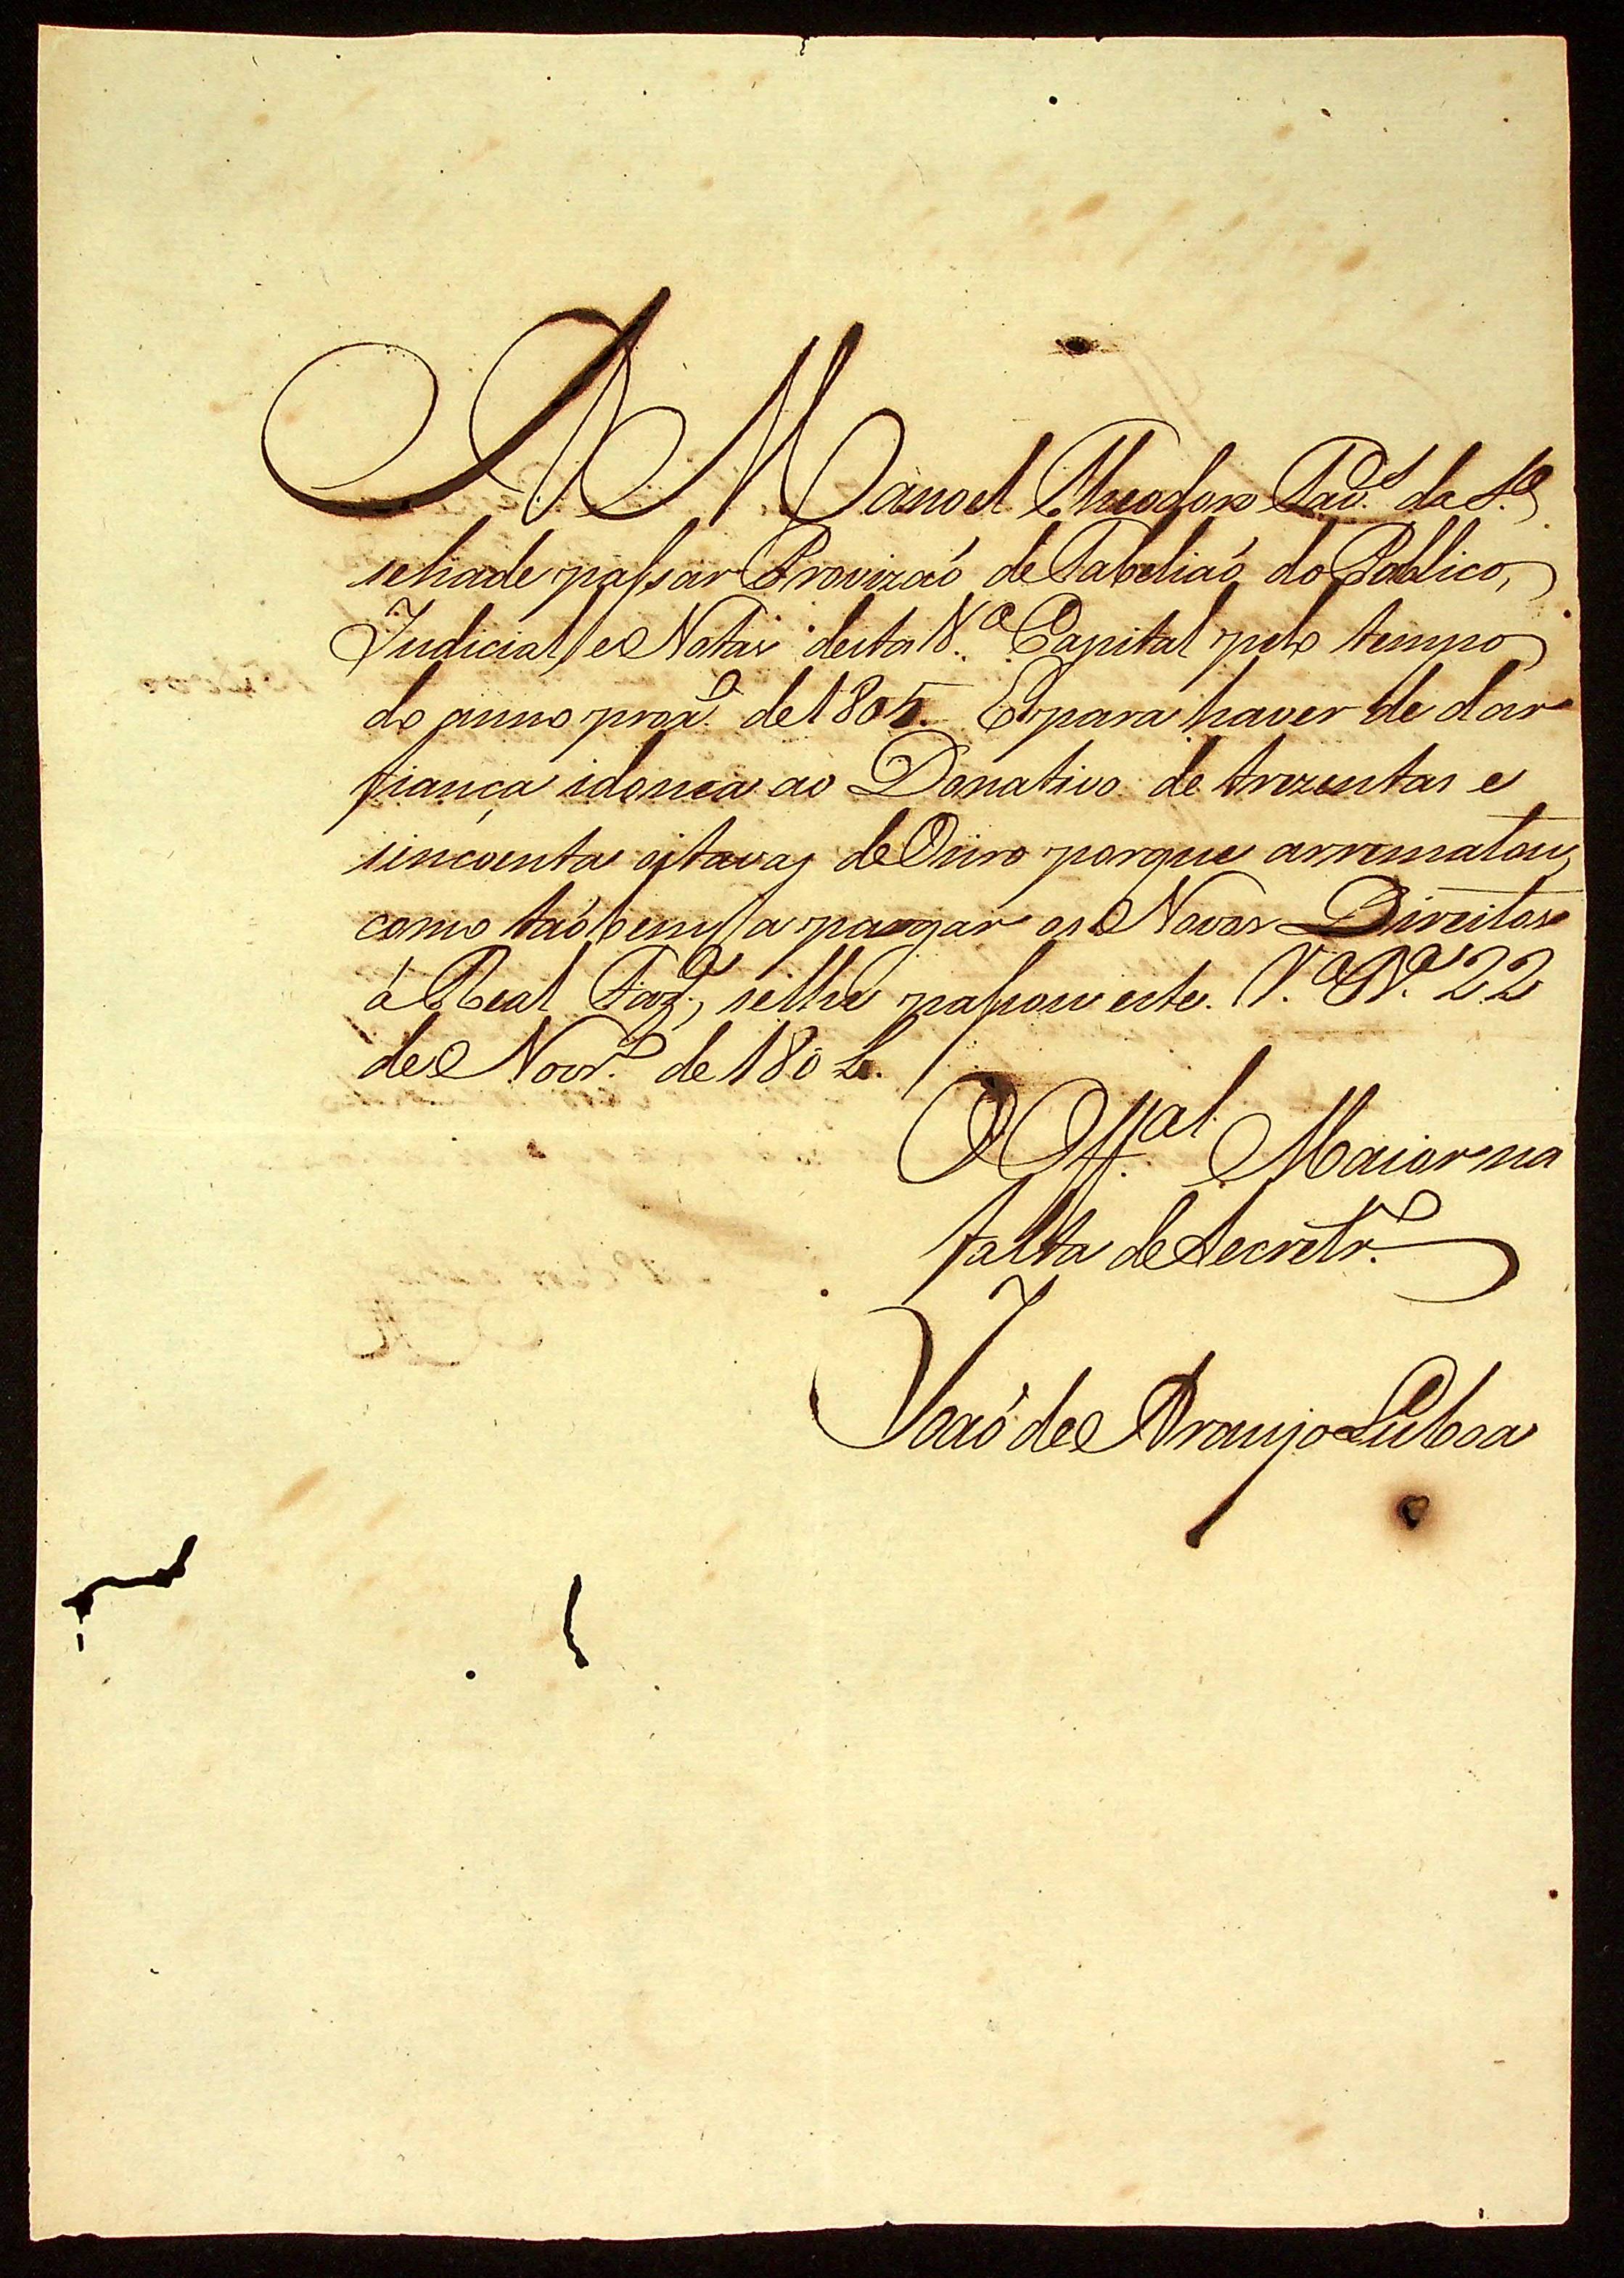 A Manoel Theodoro Tav.s da S.a
se ha de passar Provizaõ de Tabeliaõ do Publico,
Judicial, e Notas desta V.a Capital pelo tempo
do anno prox.o de 1805. E para haver de dar
fiança idonea ao Donativo de trezentas e
sincoenta oitavas de Ouro porque arrematou,
como taõbem a pagar os Novos Direitos
á Real Faz.a, se lhe passou este. V.a B.a 22
de Novr.o de 1804.
O Off.al Maior na
falta de Secretr.o
Joaõ de Araujo Lisboa